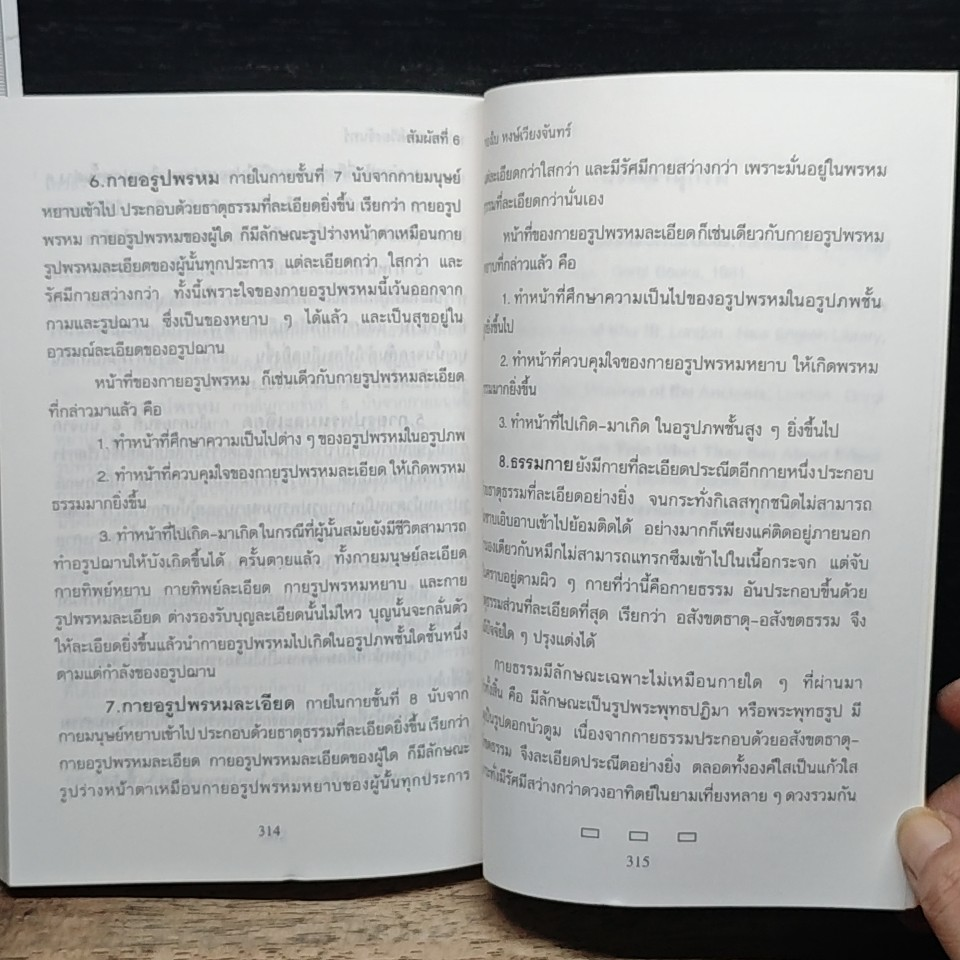 สัมผัสที่ 6
6.กายอรูปพรหม กายในกายชั้นที่ 7 นับจากกายมนุษย์
หยาบเข้าไป ประกอบด้วยธาตุธรรมที่ละเอียดยิ่งขึ้น เรียกว่า กายอรูป
พรหม กายอรูปพรหมของผู้ใด ก็มีลักษณะรูปร่างหน้าตาเหมือนกาย
รูปพรหมละเอียดของผู้นั้นทุกประการ แต่ละเอียดกว่า ใสกว่า และ
รัศมีกายสว่างกว่า ทั้งนี้เพราะใจของกายอรูปพรหมนี้เว้นออกจาก
กามและรูปฌาน ซึ่งเป็นของหยาบ ๆ ได้แล้ว และเป็นสุขอยู่ใน
อารมณ์ละเอียดของอรูปฌาน
หน้าที่ของกายอรูปพรหม ก็เช่นเดียวกับกายรูปพรหมละเอียด
ที่กล่าวมาแล้ว คือ
1. ทำหน้าที่ศึกษาความเป็นไปต่าง ๆ ของอรูปพรหมในอรูปภพ
2. ทำหน้าที่ควบคุมใจของกายรูปพรหมละเอียด ให้เกิดพรหม
ธรรมมากยิ่งขึ้น
3. ทำหน้าที่ไปเกิด-มาเกิด ในกรณีที่ผู้นั้นสมัยยังมีชีวิตสามารถ
ทำอรูปฌานให้บังเกิดขึ้นได้ ครั้นตายแล้ว ทั้งกายมนุษย์ละเอียด
กายทิพย์หยาบ กายทิพย์ละเอียด กายรูปพรหมหยาบ และกาย
รูปพรหมละเอียด ต่างรองรับบุญละเอียดนั้นไม่ไหว บุญนั้นจะกลั่นตัว
ให้ละเอียดยิ่งขึ้นแล้วนำกายอรูปพรหมไปเกิดในอรูปภพชั้นใดชั้นหนึ่ง
ตามแต่กำลังของอรูปฌาน
7.กายอรูปพรหมละเอียด กายในกายชั้นที่ 8 นับจาก
กายมนุษย์หยาบเข้าไป ประกอบด้วยธาตุธรรมที่ละเอียดยิ่งขึ้น เรียกว่า
กายอรูปพรหมละเอียด กายอรูปพรหมละเอียดของผู้ใด ก็มีลักษณะ
รูปร่างหน้าตาเหมือนกายอรูปพรหมหยาบของผู้นั้นทุกประการ
314
หงษ์เวียงจันทร์
แต่ละเอียดกว่าใสกว่า และมีรัศมีกายสว่างกว่า เพราะมั่นอยู่ในพรหม
ธรรมที่ละเอียดกว่านั่นเอง
หน้าที่ของกายอรูปพรหมละเอียด ก็เช่นเดียวกับกายอรูปพรหม
หยาบที่กล่าวแล้ว คือ
1. ทำหน้าที่ศึกษาความเป็นไปของอรูปพรหมในอรูปภพชั้น
ยิ่งขึ้นไป
2. ทำหน้าที่ควบคุมใจของกายอรูปพรหมหยาบ ให้เกิดพรหม
ธรรมมากยิ่งขึ้น
3. ทำหน้าที่ไปเกิด-มาเกิด ในอรูปภพชั้นสูง ๆ ยิ่งขึ้นไป
8.ธรรมกาย ยังมีกายที่ละเอียดประณีตอีกกายหนึ่ง ประกอบ
ธาตุธรรมที่ละเอียดอย่างยิ่ง จนกระทั่งกิเลสทุกชนิดไม่สามารถ
ซาบเอิบอาบเข้าไปย้อมติดได้ อย่างมากก็เพียงแค่ติดอยู่ภายนอก
เดียวกับหมึกไม่สามารถแทรกซึมเข้าไปในเนื้อกระจก แต่จับ
คราบอยู่ตามผิว ๆ กายที่ว่านี้คือกายธรรม อันประกอบขึ้นด้วย
ธาตุธรรมส่วนที่ละเอียดที่สุด เรียกว่า อสังขตธาตุ-อสังขตธรรม จึง
ปัจจัยใด ๆ ปรุงแต่งได้
กายธรรมมีลักษณะเฉพาะไม่เหมือนกายใด ๆ ที่ผ่านมา
ทั้งสิ้น คือ มีลักษณะเป็นรูปพระพุทธปฏิมา หรือพระพุทธรูป มี
เป็นรูปดอกบัวตูม เนื่องจากกายธรรมประกอบด้วยอสังขตธาตุ-
ขตธรรม จึงละเอียดประณีตอย่างยิ่ง ตลอดทั้งองค์ใสเป็นแก้วใส
ทั้งมีรัศมีสว่างกว่าดวงอาทิตย์ในยามเที่ยงหลาย ๆ ดวงรวมกัน
315